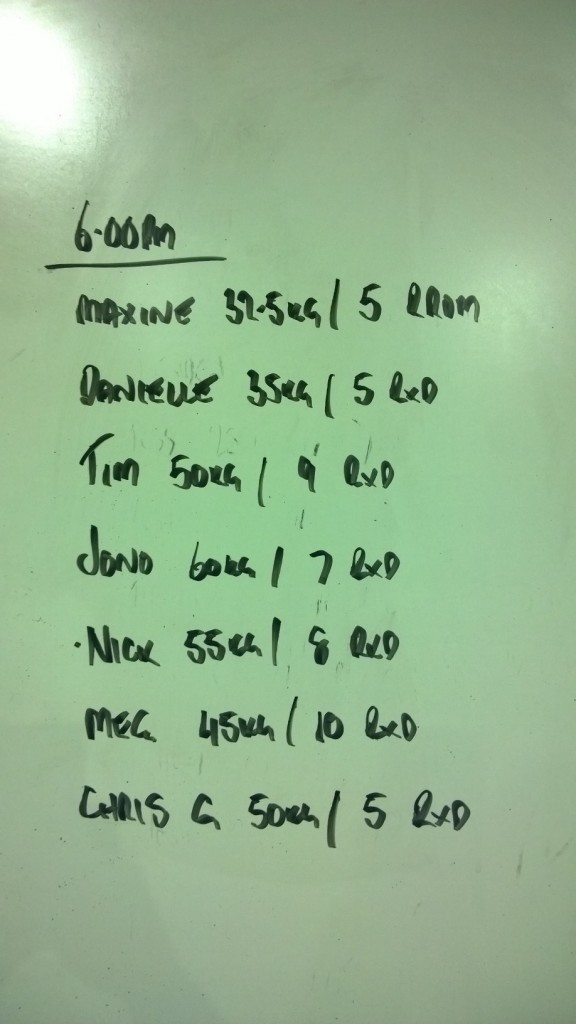 6.00PM
MAXINE 32.5KG / 5 RROM
DANIELLE 35KG / 5 RXD
TIM 50KG / 9 RXD
JONO 60KG / 7 RXD
NICK 55KG / 8 RXD
MEG 45KG / 10 RXD
CHRIS G 50KG / 5 RXD